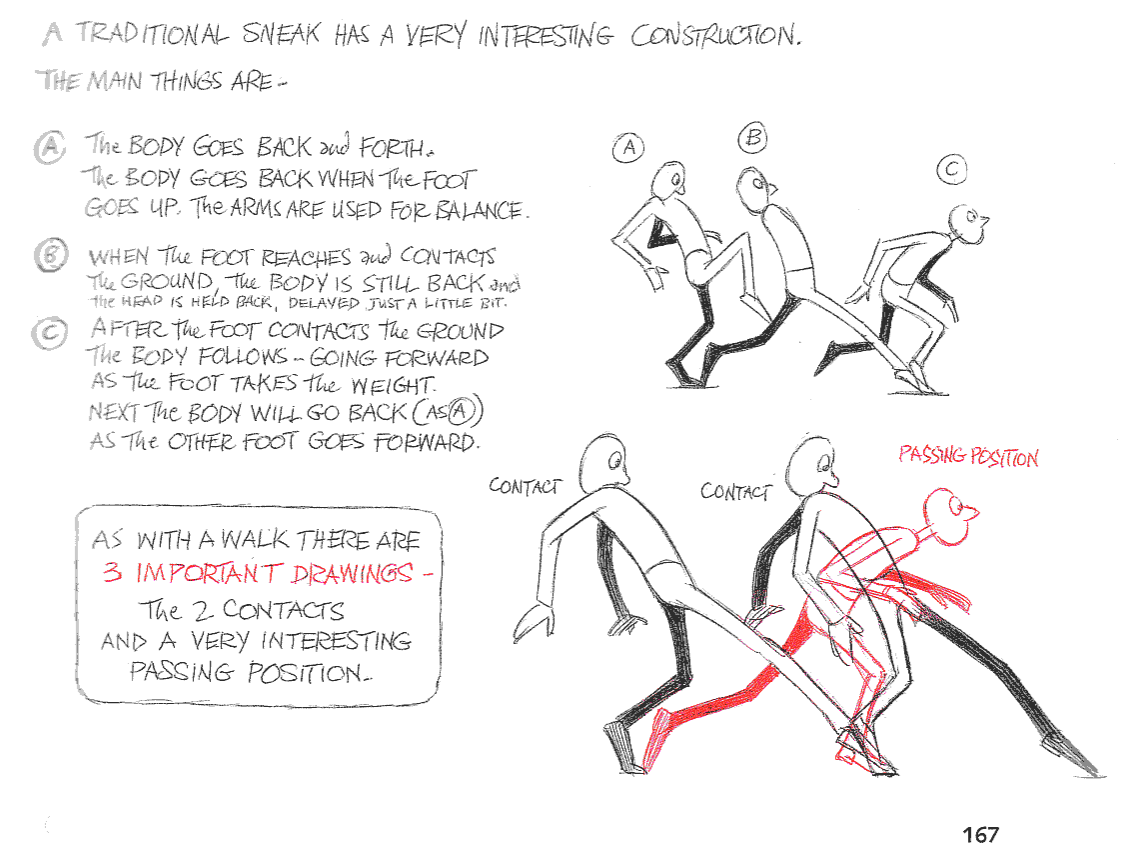 A TRADITIONAL SNEAK HAS A VERY INTERESTING CONSTRUCTION.
THE MAIN THINGS ARE -
A The BODY GOES BACK and FORTH.
The BODY GOES BACK WHEN The FOOT
GOES UP. The ARMS ARE USED FOR BALANCE.
B WHEN The FOOT REACHES and CONTACTS
The GROUND, The BODY IS STILL BACK and
the HEAD IS HELD BACK, DELAYED JUST A LITTLE BIT.
C AFTER The FOOT CONTACTS The GROUND
The BODY FOLLOWS - GOING FORWARD
AS The FOOT TAKES The WEIGHT.
NEXT The BODY WILL GO BACK (AS A)
AS The OTHER FOOT GOES FORWARD.
A
B
C
CONTACT
CONTACT
PASSING POSITION
AS WITH A WALK THERE ARE
3 IMPORTANT DRAWINGS -
The 2 CONTACTS
AND A VERY INTERESTING
PASSING POSITION -
167